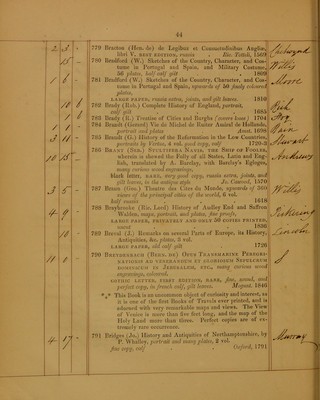 44
2 3 - 779 Bracton (Hen. de) de Legibus et Consuetudinibus Angliæ,
libri V. BEST EDITION, russia Ric. Tottell, 1569
15 - 780 Bradford (W.) Sketches of the Country, Character, and Cos- Willis
tume in Portugal and Spain, and Military Costume,
56 plates, half calf gilt 1809
1 6 - 781 Bradford (W.) Sketches of the Country, Character, and Cos- Moore
tume in Portugal and Spain, upwards of 50 finely coloured
plates,
LARGE PAPER, russia extra, joints, and gilt leaves. 1810
10 6 782 Brady (Rob.) Complete History of England, portrait,
calf gilt 1685
1 6 783 Brady (R.) Treatise of Cities and Burghs (covers loose) 1704
1 1 - 784 Brandt (Gerard) Vie du Michel de Ruiter Amiral de Hollande,
portrait and plates Amst. 1698
2 3 - 785 Brandt (G.) History of the Reformation in the Low Countries, Stewart
portraits by Vertue, 4 vol. good copy, calf 1720-3
10 15 - 786 BRANT (SEB.) STULTIFERA NAVIS, THE SHIP OF FOOLES, Andrews
wherein is shewed the Folly of all States, Latin and Eng-
lish, translated by A. Barclay, with Barclay's Eglogues,
many curious wood engravings,
black letter, RARE, very good copy, russia extra, joints, and
gilt leaves, in the antique style Jn. Cawood, 1570
3 5 - 787 Braun (Geo.) Theatre des Cités du Monde, upwards of 300 Willis
views of the principal cities of the world, 6 vol.
half russia 1618
4 9 - 788 Braybrooke (Ric. Lord) History of Audley End and Saffron Pickering
Walden, maps, portrait, and plates, fine proofs,
LARGE PAPER, PRIVATELY AND ONLY 50 COPIES PRINTED,
uncut 1836
10 - 789 Breval (J.) Remarks on several Parts of Europe, its History, Lincoln
Antiquities, &c. plates, 2 vol.
LARGE PAPER, old calf gilt 1726
11 0 - 790 BREYDENBACH (BERN. DE) OPUS TRANSMARINE PEREGRI-
NATIONIS AD VENERANDUM ET GLORIOSUM SEPULCRUM
DOMINICUM IN JERUSALEM, ETC., many curious wood
engravings, coloured.
GOTHIC LETTER, FIRST EDITION, RARE, fine, sound, and
perfect copy, in french calf, gilt leaves. Mogunt. 1486
*** This Book is an uncommon object of curiosity and interest, as
it is one of the first Books of Travels ever printed, and is
adorned with very remarkable maps and views. The View
of Venice is more than five feet long, and the map of the
Holy Land more than three. Perfect copies are of ex-
tremely rare occurrence.
4 17 - 791 Bridges (Jo.) History and Antiquities of Northamptonshire, by Murray
P. Whalley, portrait and many plates, 2 vol.
fine copy, calf Oxford, 1791